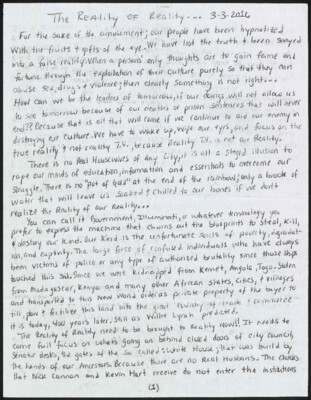 The Reality of Reality... 3-3-2016
For the sake of the amusement; our people have been hypnotized
With the fruits & gifts of the eye. We have lost the truth & been swayed
into a false reality. When a persons only thoughts are to gain fame and
fortune through the exploitation of their culture purely so that they can
abuse sex, drugs & violence; then clearly something is not right...
How can we be the leaders of tomorrow, if our doings will not allow us
to see tomorrow because of our deaths or prison sentences that will never
end?? Because that is all that will come if we continue to aid our enemy in
destroying our culture. We have to wake up, wipe our eyes, and focus on the
true reality & not reality T.V., because Reality T.V. is not our Reality.
There is no Real Housewives of any City, it is all a staged illusion to
rape our minds of education, information and essentials to overcome our
struggle. There is no "pot of gold" at the end of the rainbow; only a bucket of
water that will leave us soaked & chilled to our bones if we don't
realize the Reality of our Reality...
You can call it Government, Illuminati, or whatever terminology you
prefer to express the machine that churns out the blueprints to steal, kill,
& destroy our kind. Our kind is the unfortunate souls of poverty, degradat-
ion, and captivity. The large force of confused individuals who have always
been victims of police or any type of authorized brutality since those ships
touched this soil. Since we were kidnapped from Kemet, Angola, Togo, Sudan
from Madagascar, Kenya and many other African States, Cities, & Villages
and transported to this New World order as private property of the buyer to
till, plow & fertilize this land into the giant country of trade & commerce
it is today, 400 years later. Still as Willie Lynch predicted.
The Reality of Reality need to be brought to Reality now!! It needs to
come full focus on what's going on behind closed doors of city council,
senates desks, the gates of the so called: White House; that was build by
the hands of our Ancestors. Because there are no Real Husbands. The checks
that Nick Cannon and Kevin Hart receive do not enter the institutions
(1)